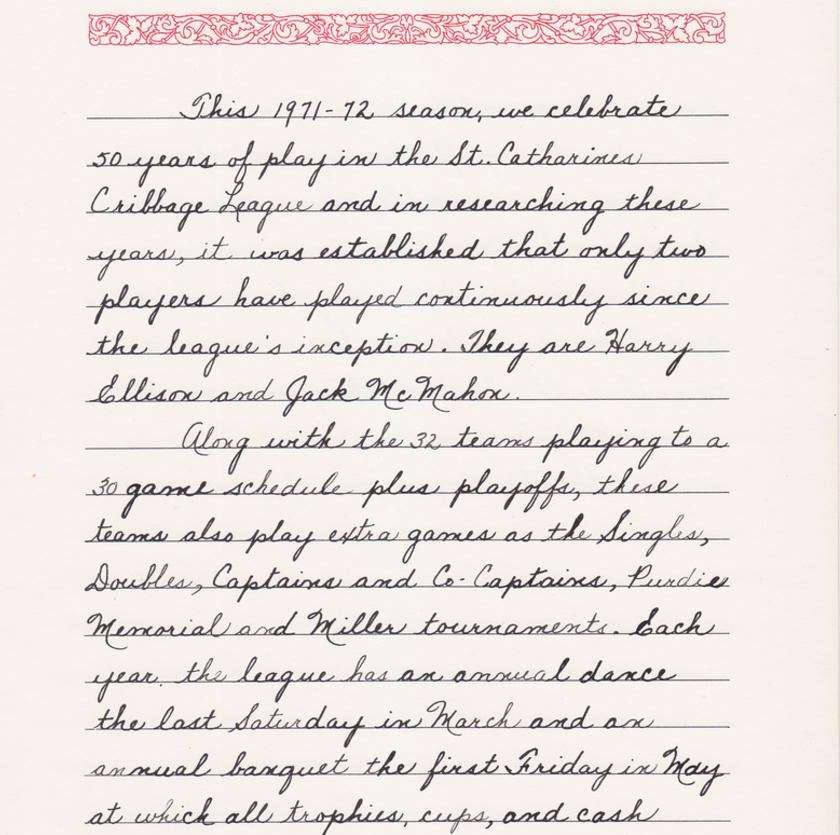 This 1971-72 season, we celebrate
50 years of play in the St. Catharines
Cribbage League and in researching these
years, it was established that only two
players have played continuously since
the league's inception. They are Harry
Ellison and Jack McMahon.
Along with the 32 teams playing to a
30 game schedule plus playoffs, these
teams also play extra games as the Singles,
Doubles, Captains and Co-Captains, Purdie
Memorial and Miller tournaments. Each
year the league has an annual dance
the last Saturday in March and an
annual banquet the first Friday in May
at which all trophies, cups, and cash